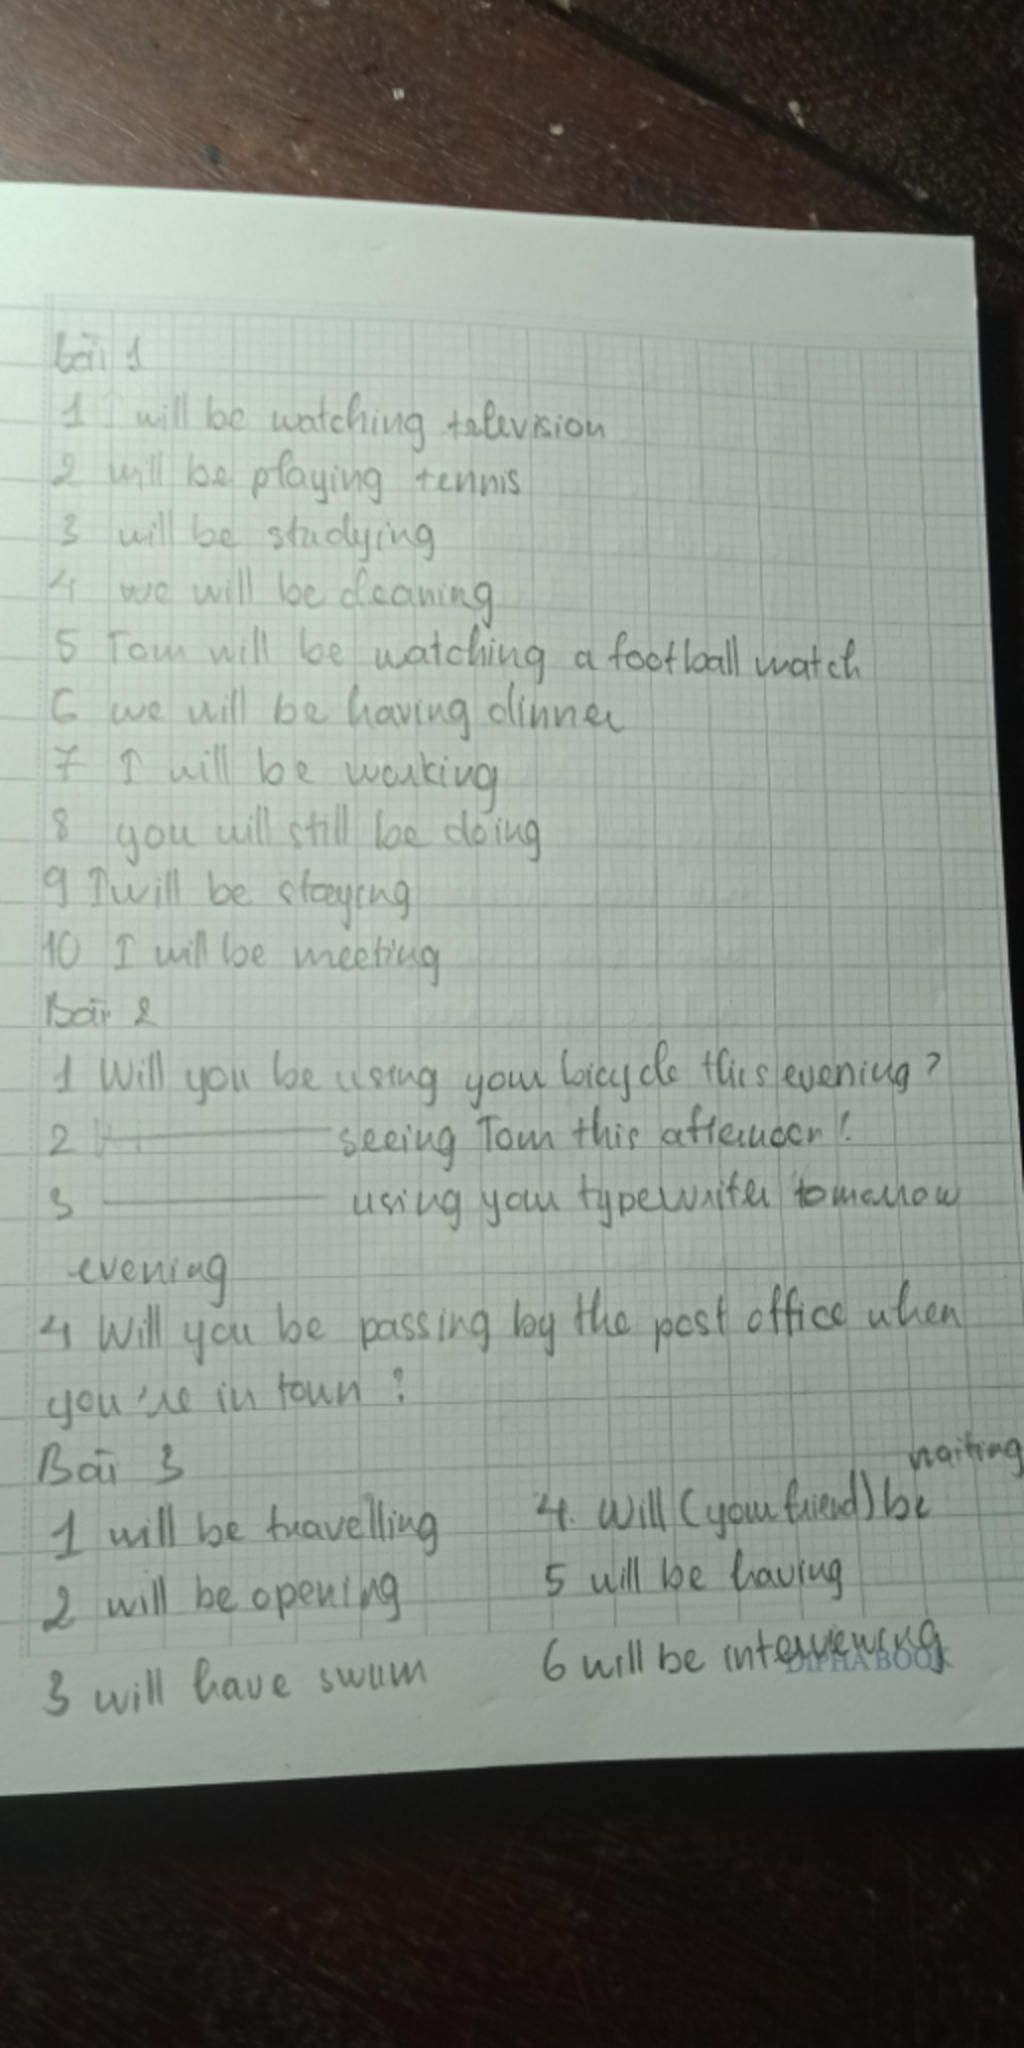 Bài 1
1 I will be watching television
2 will be playing tennis
3 will be studying
4 we will be cleaning
5 Tom will be watching a football watch
6 we will be having dinner
7 I will be working
8 you will still be doing
9 I will be staying
10 I will be meeting
Bài 2
1 Will you be using your bicycle this evening?
2 ——— seeing Tom this afternoon?
3 ——— using your typewriter tomorrow
evening
4 Will you be passing by the post office when
you're in town?
Bài 3
1 will be travelling
2 will be opening
3 will have swum
waiting
4. Will (your friend) be
5 will be having
6 will be interviewing
DIPHABOOK